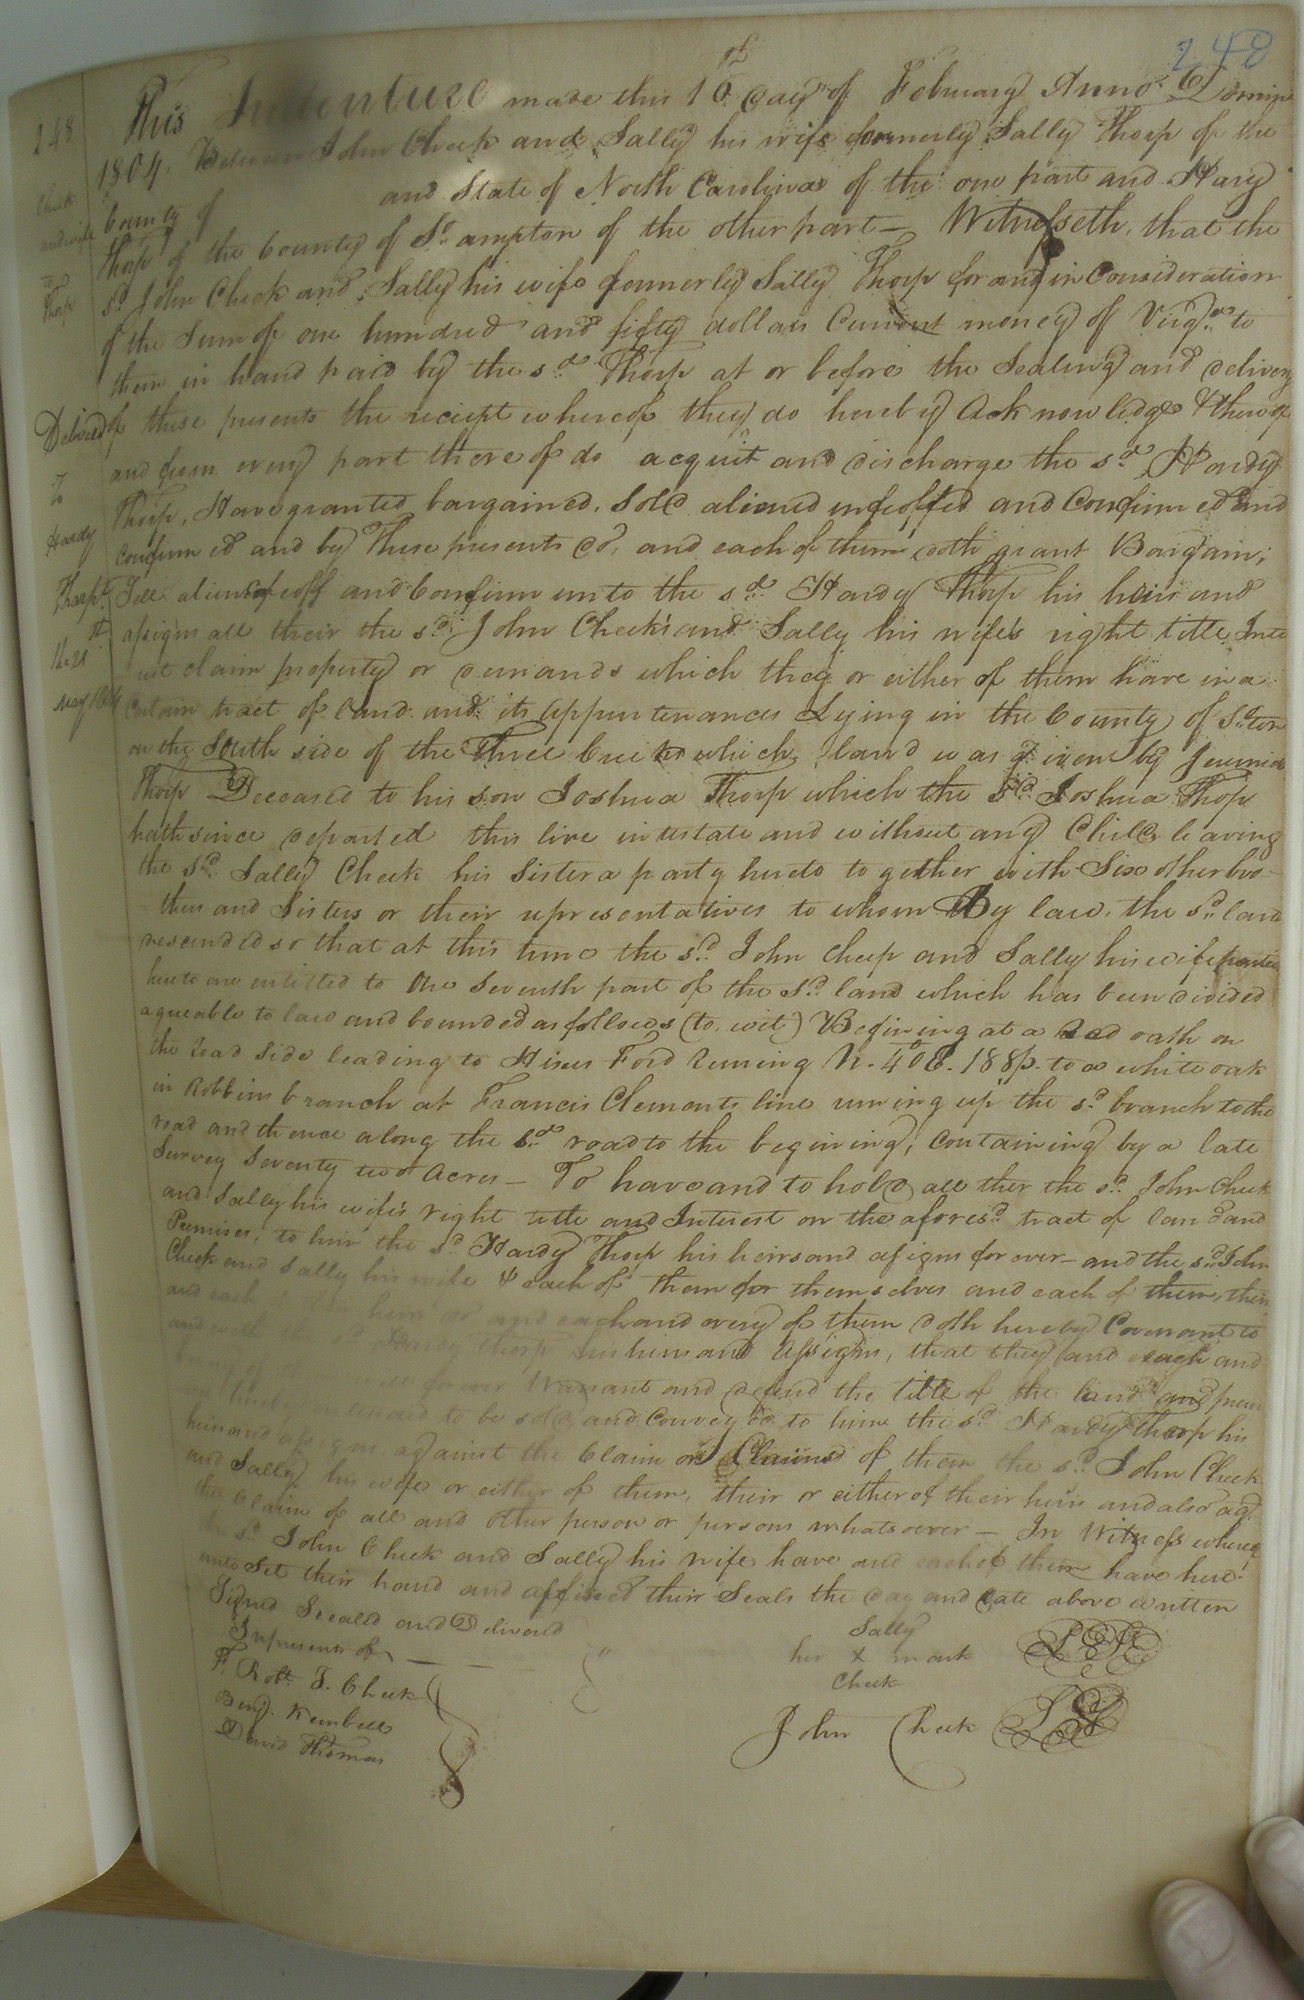 248
248
This Indenture made this 16th day of February Anno Domini
1804. Between John Cheek and Sally his wife formerly Sally Thorp of the
County of and State of North Carolina of the one part and Hardy
Thorp of the County of So.ampton of the other part — Witnesseth, that the
sd. John Cheek and Sally his wife formerly Sally Thorp for and in Consideration
of the Sum of one hundred and fifty dollars Current money of Virga. to
them in hand paid by the sd. Thorp at or before the Sealing and delivery
of these presents the reciept whereof they do hereby Acknowledge & thereof
and from every part thereof do acquit and discharge the sd. Hardy
Thorp, Have granted bargained, Sold aliened enfeoffed and Confirmed and
Confirmed and by These presents do, and each of them doth grant Bargain,
Sell alien enfeoff and Confirm unto the sd. Hardy Thorp his heirs and
assigns all their the sd. John Cheek's and Sally his wife's right title Inte
rest claim property or demands which they or either of them have in a
Certain tract of land and its appurtenances Lying in the County of So.ton
on the South side of the Three Creeks which land was given by Jeremiah
Thorp Deceased to his son Joshua Thorp which the sd. Joshua Thorp
hath since departed this live intestate and without any Child leaving
the sd. Sally Cheek his Sister a party hereto together with Six other bro-
thers and Sisters or their representatives to whom By law, the sd. land
descended so that at this time the sd. John Cheep and Sally his wife parties
hereto are entitled to One Seventh part of the sd. land which has been divided
agueable to law and bounded as follows (to wit) Begining at a Red oath on
the Road Side leading to Hines Ford runing N. 40 E. 188p. to a white oak
in Robbins branch at Francis Clements line runing up the sd. branch to the
road and thence along the sd. road to the begining, Containing by a late
Survey Seventy two Acres — To have and to hold all ther the sd. John Cheek
and Sally his wife's right title and Interest on the aforesd. tract of land and
Premises, to him the sd. Hardy Thorp his heirs and assigns for ever — and the sd. John
Cheek and Sally his wife & each of them for themselves and each of their, their
and each heirs and each and every of them doth hereby Covenant to
and with the sd. Hardy Thorp his heirs and Assigns, that they and each and
will forever Warrant and defend the title of the land and prem
intended to be sold and Conveyed to him the sd. Hardy Thorp his
heirs and assigns, against the Claim or Claims of them the sd. John Cheek
and Sally his wife or either of them, their or either of their heirs and also agt.
the Claim of all and other person or persons whatsoever — In Witness whereof
the sd. John Cheek and Sally his wife have and each of them have here-
unto Set their hand and affixed their Seals the day and date above written
Signed Sealed and Delivered
In presents of —
T. Robt. T. Cheek
Benj. Kimbell
David Thomas
Sally
her X mark
Cheek
John Cheek
Cheek
and wife
to
Thorp
Delivered
To
Hardy
Thorp
the 21st
may 1804